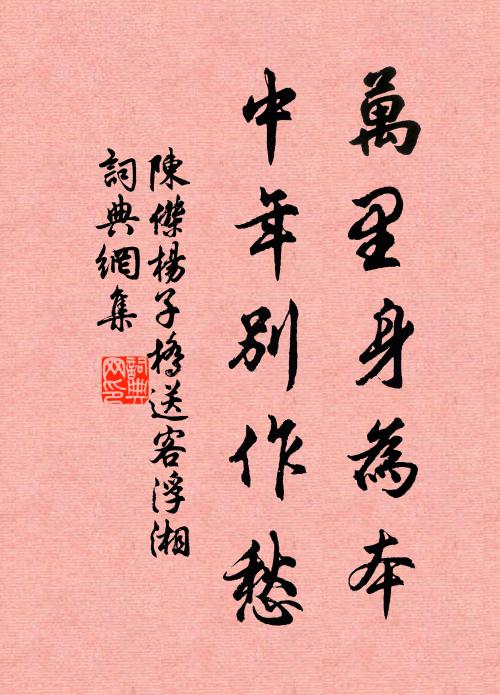 萬里身為本
中年別作愁
陳傑楊子橋送客浮湘
詞典網集
詞典
网印